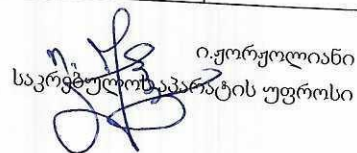 ი.ჟორჟოლიანი
საკრებულოს აპარატის უფროსი